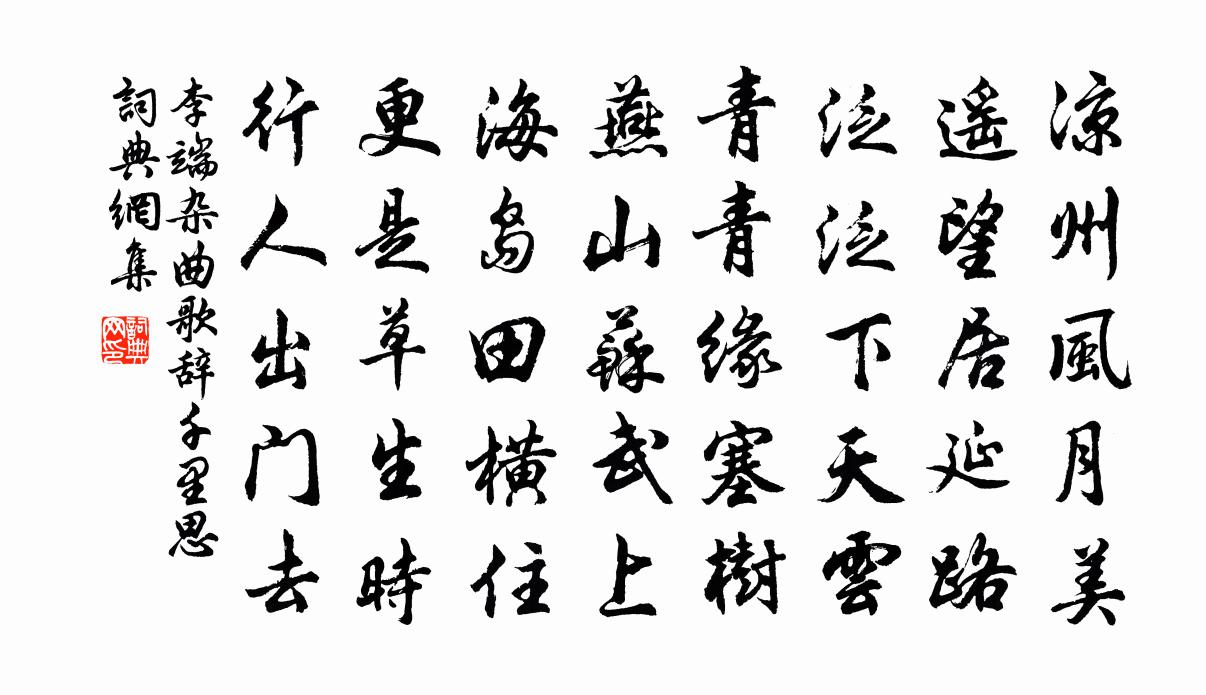 凉州風月美
遥望居延路
泛泛下天雲
青青緣塞樹
燕山蘇武上
海島田橫住
更是草生時
行人出門去
李端杂曲歌辞千里思
詞典網集
詞典
网印